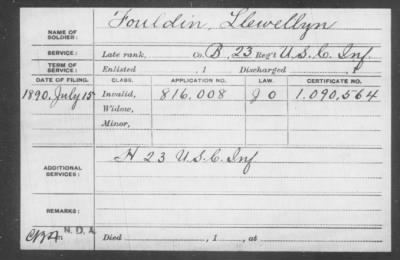 NAME OF SOLDIER: Fouldin, Llewellyn
SERVICE: Late rank, Co. B, 23 Reg't U.S.C. Inf.
TERM OF SERVICE: Enlisted , 1 Discharged , 1
DATE OF FILING. CLASS. APPLICATION NO. LAW. CERTIFICATE NO.
1890, July 15 Invalid, 816,008 J O 1,090,564
Widow,
Minor,
ADDITIONAL SERVICES: H 23 U.S.C. Inf
REMARKS:
N. D. A.
Died , 1 , at